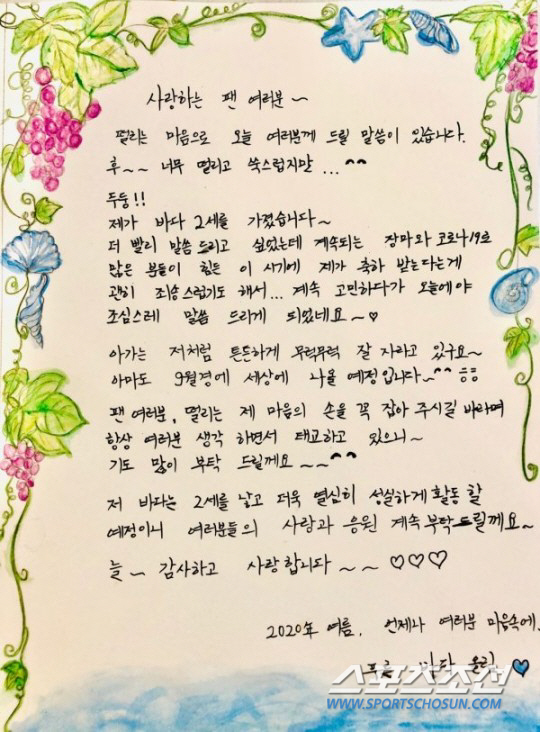 사랑하는 팬 여러분~
떨리는 마음으로 오늘 여러분께 드릴 말씀이 있습니다.
후~~ 너무 떨리고 쑥스럽지만 ...^^
두둥!!
제가 바다 2세를 가졌습니다~
더 빨리 말씀 드리고 싶었는데 계속되는 장마와 코로나19로
많은 분들이 힘든 이 시기에 제가 축하 받는다는게
괜히 죄송스럽기도 해서... 계속 고민하다가 오늘에야
조심스레 말씀 드리게 되었네요~♡
아가는 저처럼 튼튼하게 무럭무럭 잘 자라고 있구요~
아마도 9월경에 세상에 나올 예정입니다~^^ ㅎㅎ
팬 여러분, 떨리는 제 마음의 손을 꼭 잡아 주시길 바라며
항상 여러분 생각 하면서 태교하고 있으니~
기도 많이 부탁 드릴께요~~^^
저 바다는 2세를 낳고 더욱 열심히 성실하게 활동 할
예정이니 여러분들의 사랑과 응원 계속 부탁드릴께요~
늘~ 감사하고 사랑합니다~~ ♡♡♡
2020年 여름, 언제나 여러분 마음속에,
바다 올림 ♥
스포츠조선
WWW.SPORTSCHOSUN.COM